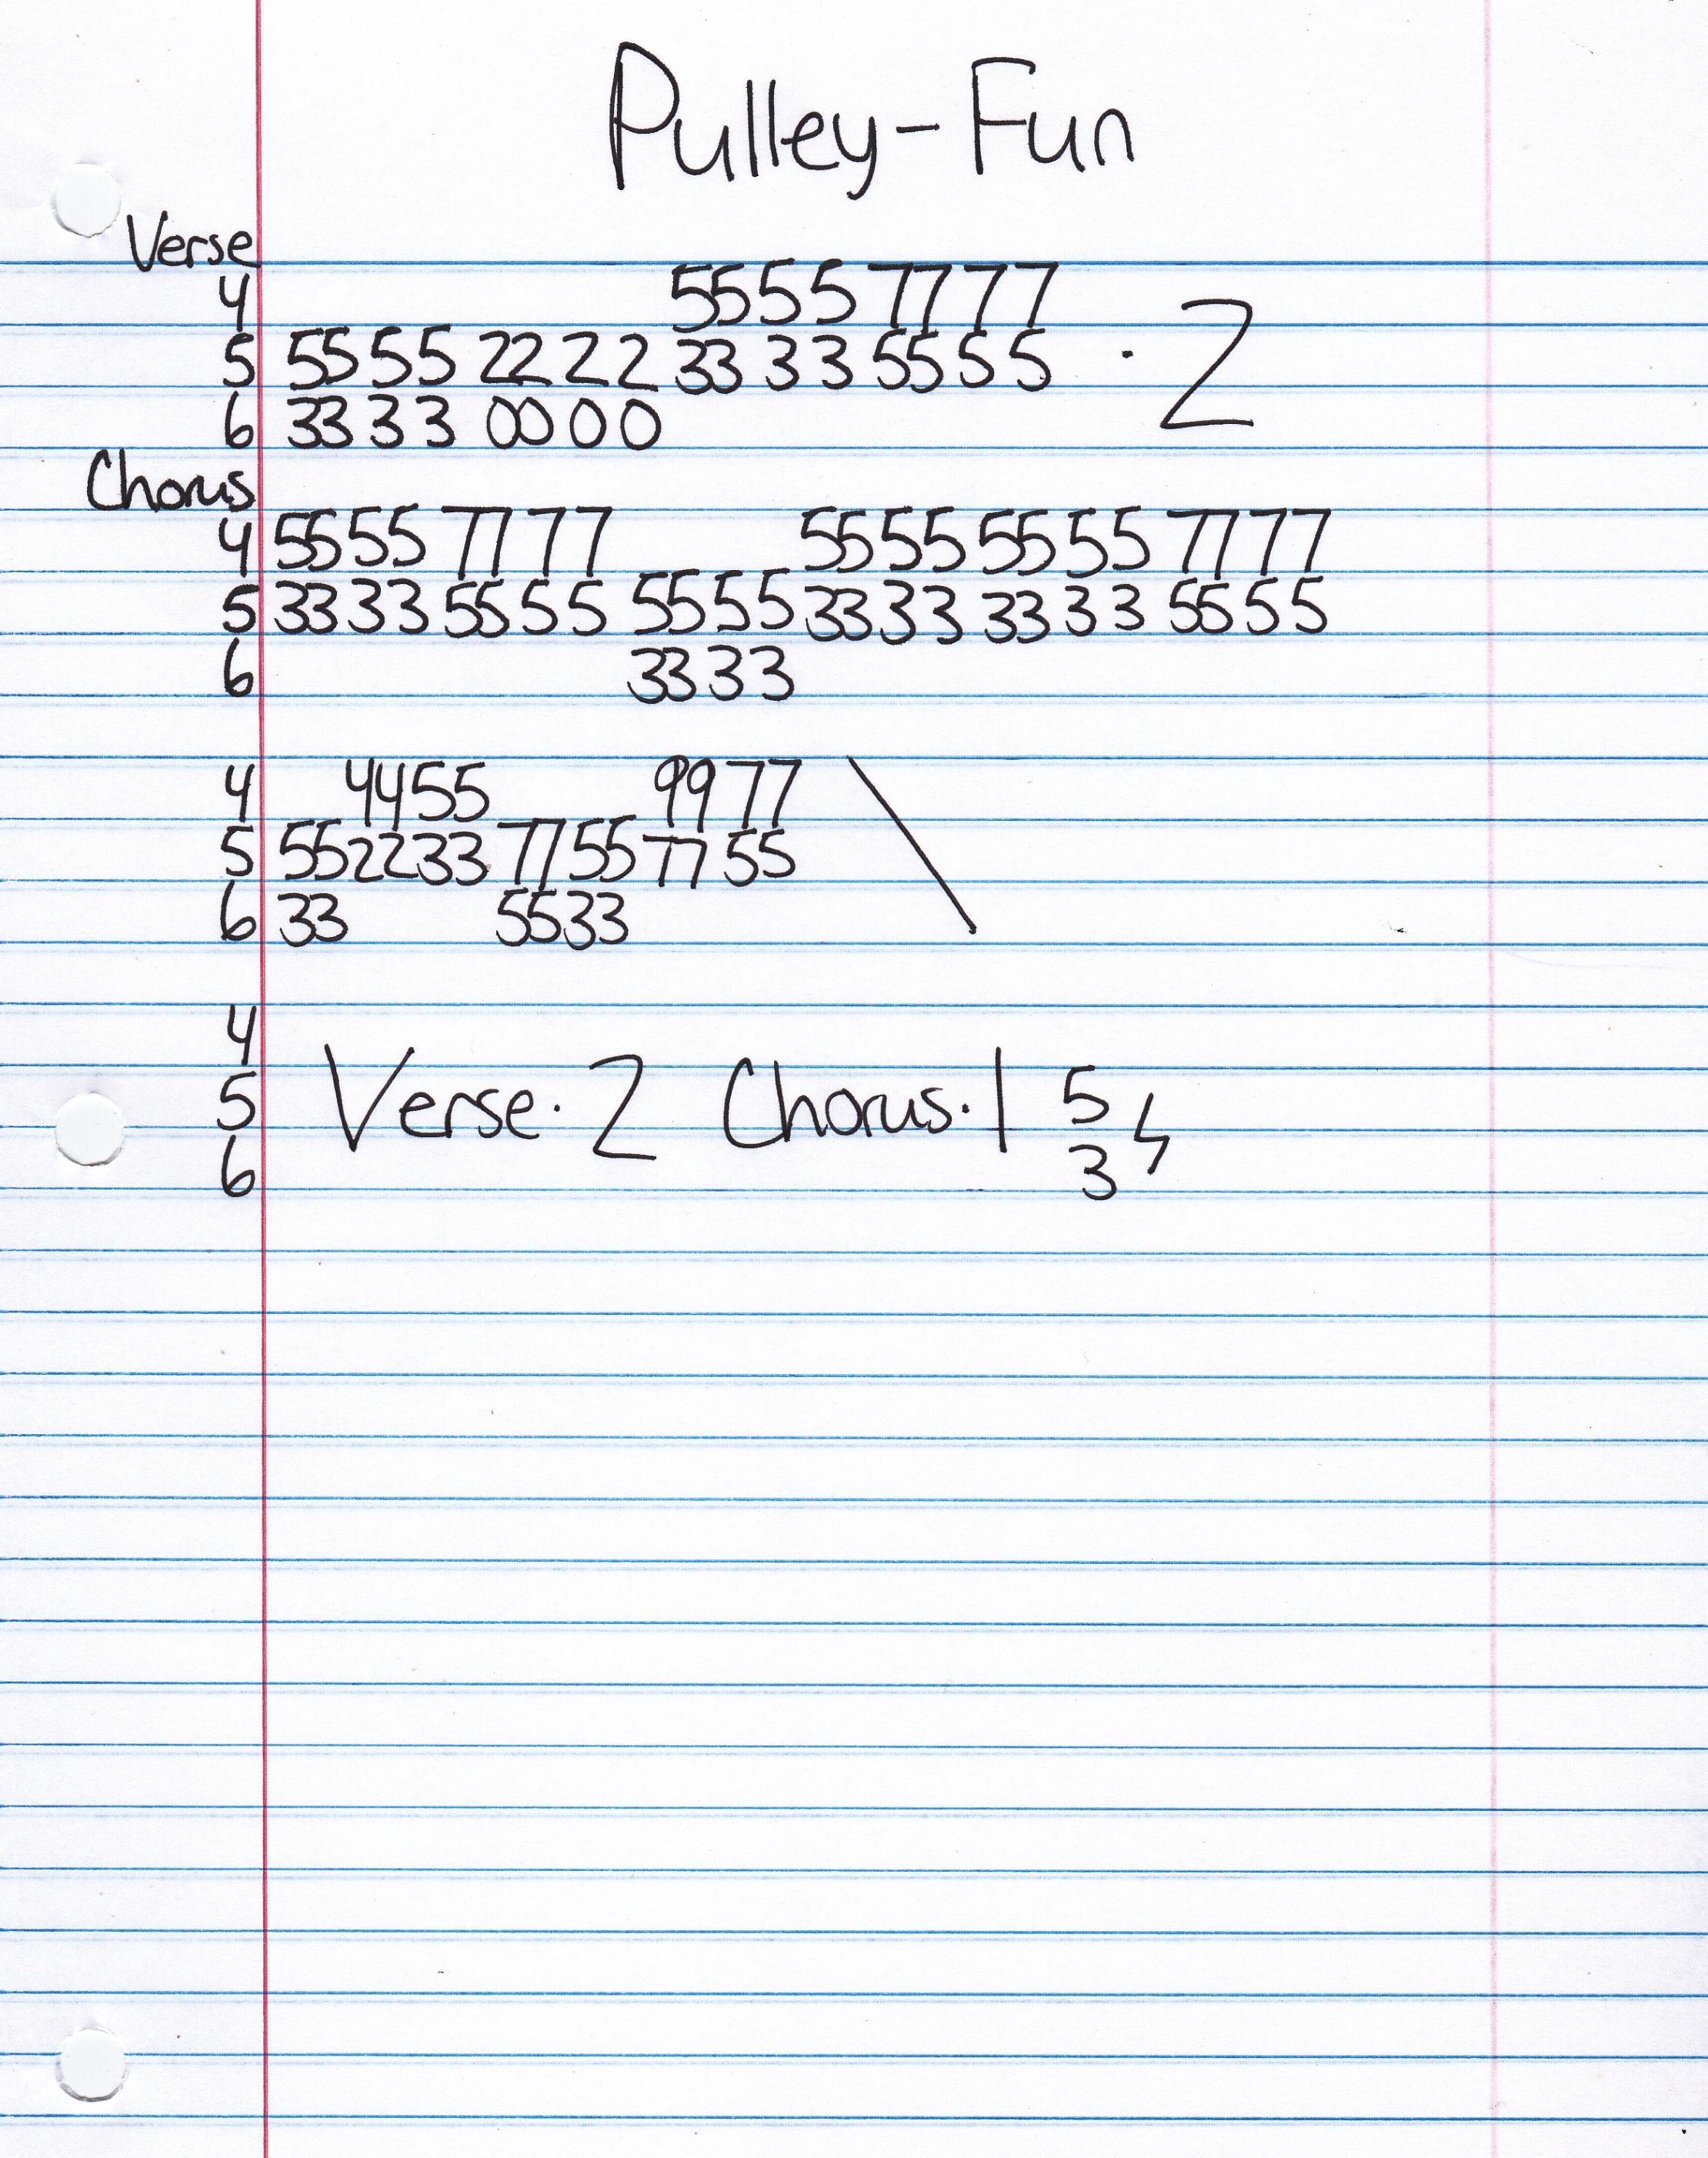 Pulley-Fun
Verse
4 55 5 5 77 7 7
5 55 5 5 22 2 2 33 3 3 55 5 5 · 2
6 33 3 3 00 0 0
Chorus
4 55 5 5 77 7 7 55 5 5 55 5 5 77 7 7
5 33 3 3 55 5 5 55 5 5 33 3 3 33 3 3 55 5 5
6 33 3 3
4 44 55 99 77 \
5 55 22 33 77 55 77 55
6 33 55 33
4
5 Verse · 2 Chorus · 1 5
6 3